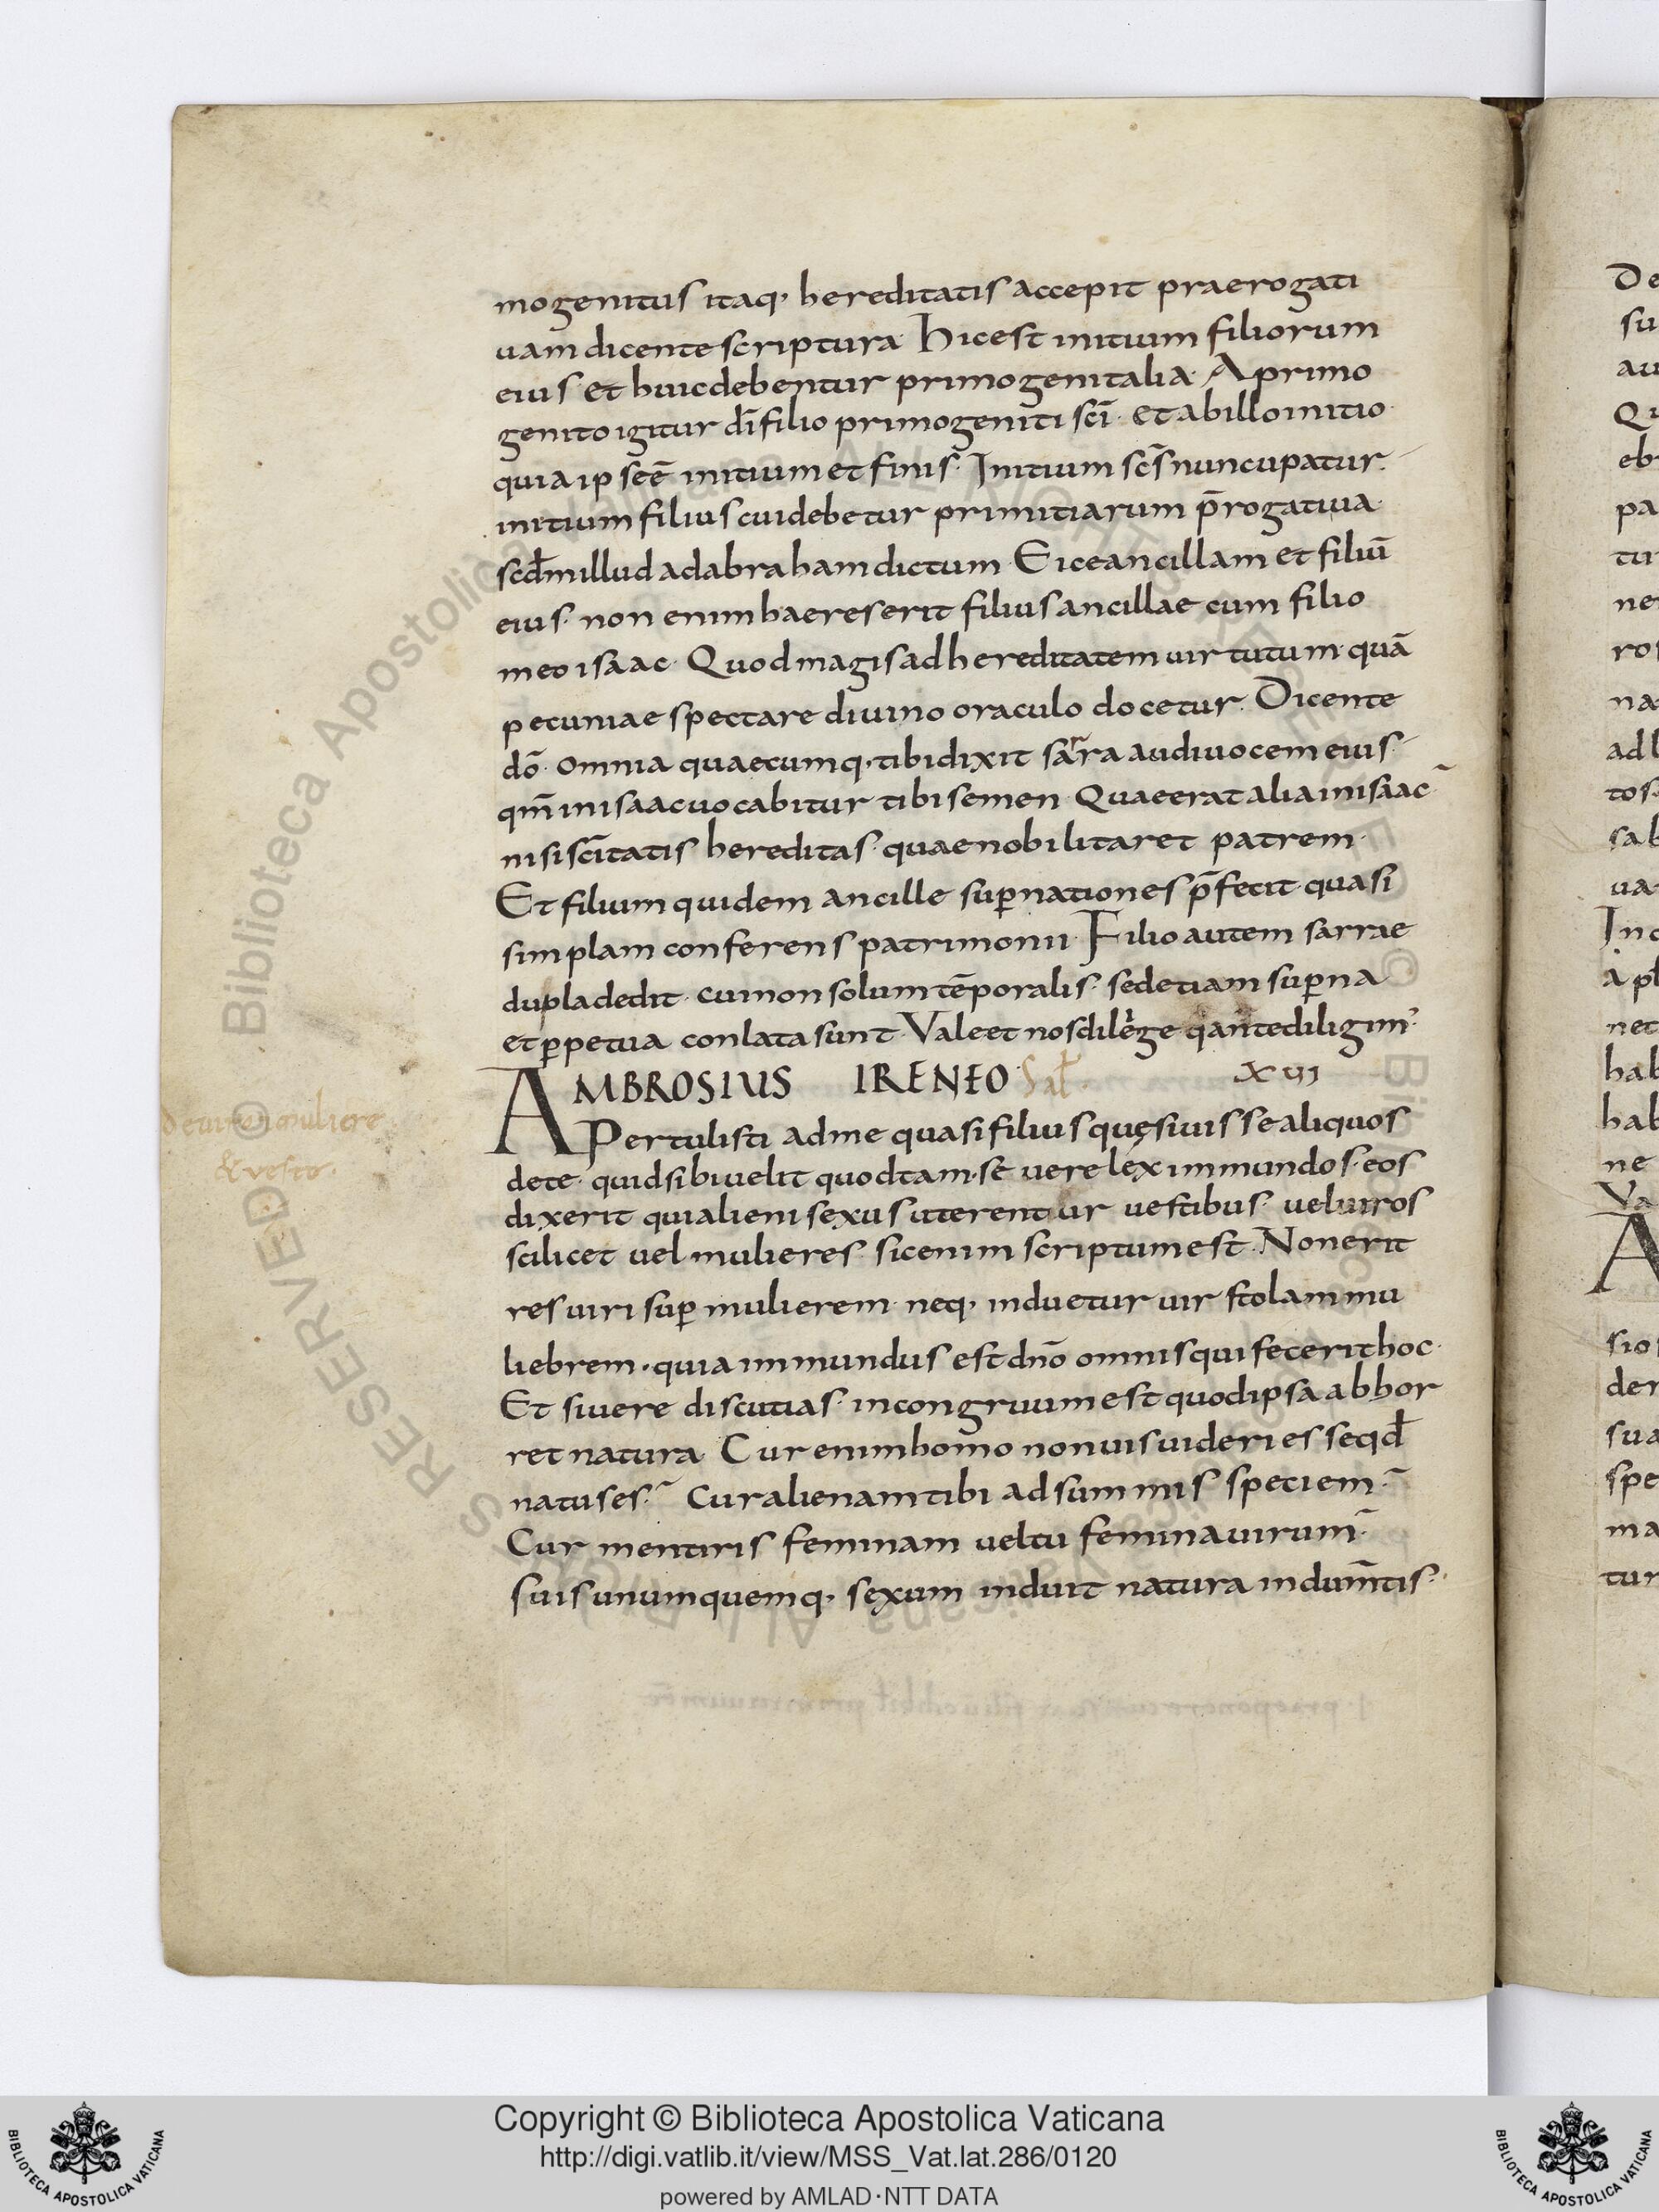 mogenitus itaq; hereditatis accepit praerogati
uam dicente scriptura· Hic est initium filiorum
eius· et huic debentur primogenitalia· A primo
genito igitur dī filio primogeniti scī· et ab illo initio·
quia ipse ē initium et finis· Initium scs̄ nuncupatur·
initium filius cui debetur primitiarum p̄rogatiua·
scdm̄ illud ad abraham dictum· Eice ancillam et filiū
eius· non enim haeres erit filius ancillae cum filio
meo isaac· Quod magis ad hereditatem uirtutum· quā
pecuniae spectare diuino oraculo docetur· Dicente
dō· omnia quaecumq; tibi dixit sarra audi uocem eius·
qm̄ in isaac uocabitur tibi semen· Quae erat alia in isaac
nisi scītatis hereditas· quae nobilitaret patrem·
Et filium quidem ancille suꝑ nationes p̄fecit· quasi
simplam conferens patrimonii· Filio autem sarrae
dupla dedit· cui non solum tēporalis· sed etiam suꝑna
et ꝑpetua conlata sunt· Vale et nos dilege q̄ ante diligim'·
AMBROSIUS IRENEO Sal̄· XVI
Pertulisti ad me quasi filius quęsiuisse aliquos
de te· quid sibi uelit quod tam·seuere lex immundos· eos
dixerit qui alieni sexus uterentur uestibus· uel uiros
scilicet uel mulieres· sic enim scriptum est· Non erit
res uiri suꝑ mulierem· neq; induetur uir stolam mu
liebrem· quia immundus est dn̄o omnis qui fecerit hoc·
Et si uere discutias· incongruum est quod ipsa abhor
ret natura· Cur enim homo non uis uideri esse qd̄
natus es· Cur alienam tibi adsummis speciem·
Cur mentiris feminam uel tu femina uirum·
suis unumquemq; sexum induit natura indum̄tis·
De uiro muliere
& veste·
Copyright © Biblioteca Apostolica Vaticana
http://digi.vatlib.it/view/MSS_Vat.lat.286/0120
powered by AMLAD·NTT DATA
BIBLIOTECA APOSTOLICA VATICANA
BIBLIOTECA APOSTOLICA VATICANA